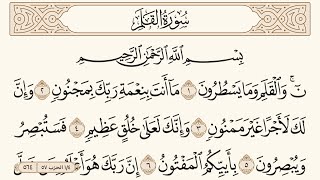 سُورَةُ القَلَمِ
بِسْمِ اللَّهِ الرَّحْمَٰنِ الرَّحِيمِ
نٓۚ وَالْقَلَمِ وَمَا يَسْطُرُونَ ١ مَا أَنتَ بِنِعْمَةِ رَبِّكَ بِمَجْنُونٍ ٢ وَإِنَّ
لَكَ لَأَجْرًا غَيْرَ مَمْنُونٍ ٣ وَإِنَّكَ لَعَلَىٰ خُلُقٍ عَظِيمٍ ٤ فَسَتُبْصِرُ
وَيُبْصِرُونَ ٥ بِأَييِّكُمُ الْمَفْتُونُ ٦ إِنَّ رَبَّكَ هُوَ أَعْلَمُ بِمَن ضَلَّ
الحزب ٥٧
٥٦٤